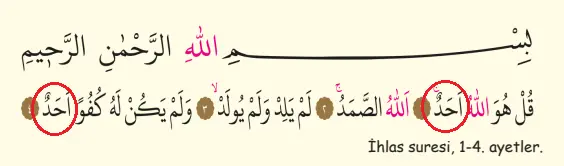 بِسْمِ اللّٰهِ الرَّحْمٰنِ الرَّح۪يمِ
قُلْ هُوَ اللّٰهُ اَحَدٌۚ ﴿١﴾ اَللّٰهُ الصَّمَدُۚ ﴿٢﴾ لَمْ يَلِدْ وَلَمْ يُولَدْۙ ﴿٣﴾ وَلَمْ يَكُنْ لَهُ كُفُوًا اَحَدٌ ﴿٤﴾
İhlas suresi, 1-4. ayetler.